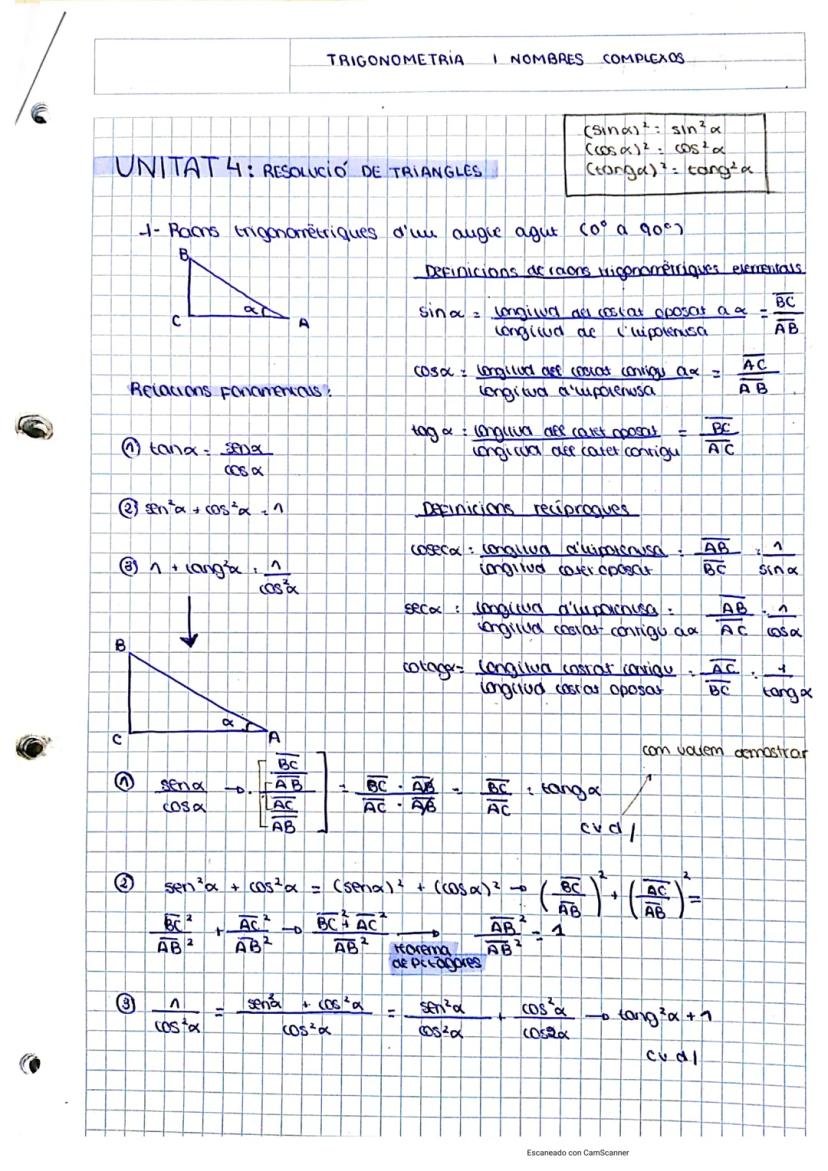 TRIGONOMETRIA I NOMBRES COMPLEXOS
(sin α)² = sin² α
(cos α)² = cos² α
(tang α)² = tang² α
UNITAT 4: RESOLUCIÓ DE TRIANGLES
1- Raons trigonomètriques d'un angle agut (0° a 90°)
B
C
α
A
Definicions de raons trigonomètriques elementals
sin α = longitud del costat oposat a α / longitud de l'hipotenusa = BC / AB
cos α = longitud del costat contigu a α / longitud d'hipotenusa = AC / AB
tag α = longitud del catet oposat / longitud del catet contigu = BC / AC
Relacions fonamentals:
① tan α = sen α / cos α
② sen² α + cos² α = 1
③ 1 + tang² α = 1 / cos² α
Definicions recíproques
cosec α = longitud d'hipotenusa / longitud catet oposat = AB / BC = 1 / sin α
sec α = longitud d'hipotenusa / longitud costat contigu a α = AB / AC = 1 / cos α
cotag α = longitud costat contigu / longitud costat oposat = AC / BC = 1 / tang α
B
C
α
A
com volem demostrar
① sen α / cos α → [BC / AB / AC / AB] = BC · AB / AC · AB = BC / AC = tang α
cvd/
② sen² α + cos² α = (sen α)² + (cos α)² → (BC / AB)² + (AC / AB)² =
BC² / AB² + AC² / AB² → BC² + AC² / AB² → AB² / AB² = 1
teorema
de Pitàgores
③ 1 / cos² α = sen² α + cos² α / cos² α = sen² α / cos² α + cos² α / cos2α → tang² α + 1
cvd/
Escaneado con CamScanner